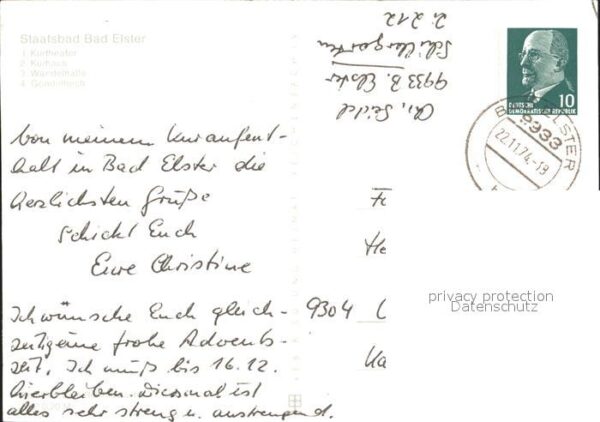 Staatsbad Bad Elster
1. Kurtheater
2. Kurhaus
3. Wandelhalle
4. Gondelteich
Von meinem Kuraufent-
halt in Bad Elster die
herzlichsten Grüße
schickt Euch
Eure Christine
Ich wünsche Euch gleich-
zeitig eine frohe Advents-
zeit. Ich muß bis 16.12.
hierbleiben. Diesmal ist
alles sehr streng u. anstrengend.
Chr. Seidel
9933 B. Elster
Schillergarten
Zi 212
DEUTSCHE
DEMOKRATISCHE REPUBLIK
10
BAD ELSTER
9933
22.11.74.-19
9304
privacy protection
Datenschutz